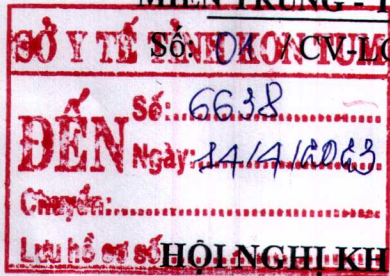 MIỀN TRUNG - T
SỞ Y TẾ TỈNH KON TUM
Số: 01 / CV-LC
ĐẾN
Số: 6638
Ngày: 14/4/2023
Chuyển:
Lưu hồ sơ số
HỘI NGHỊ KH